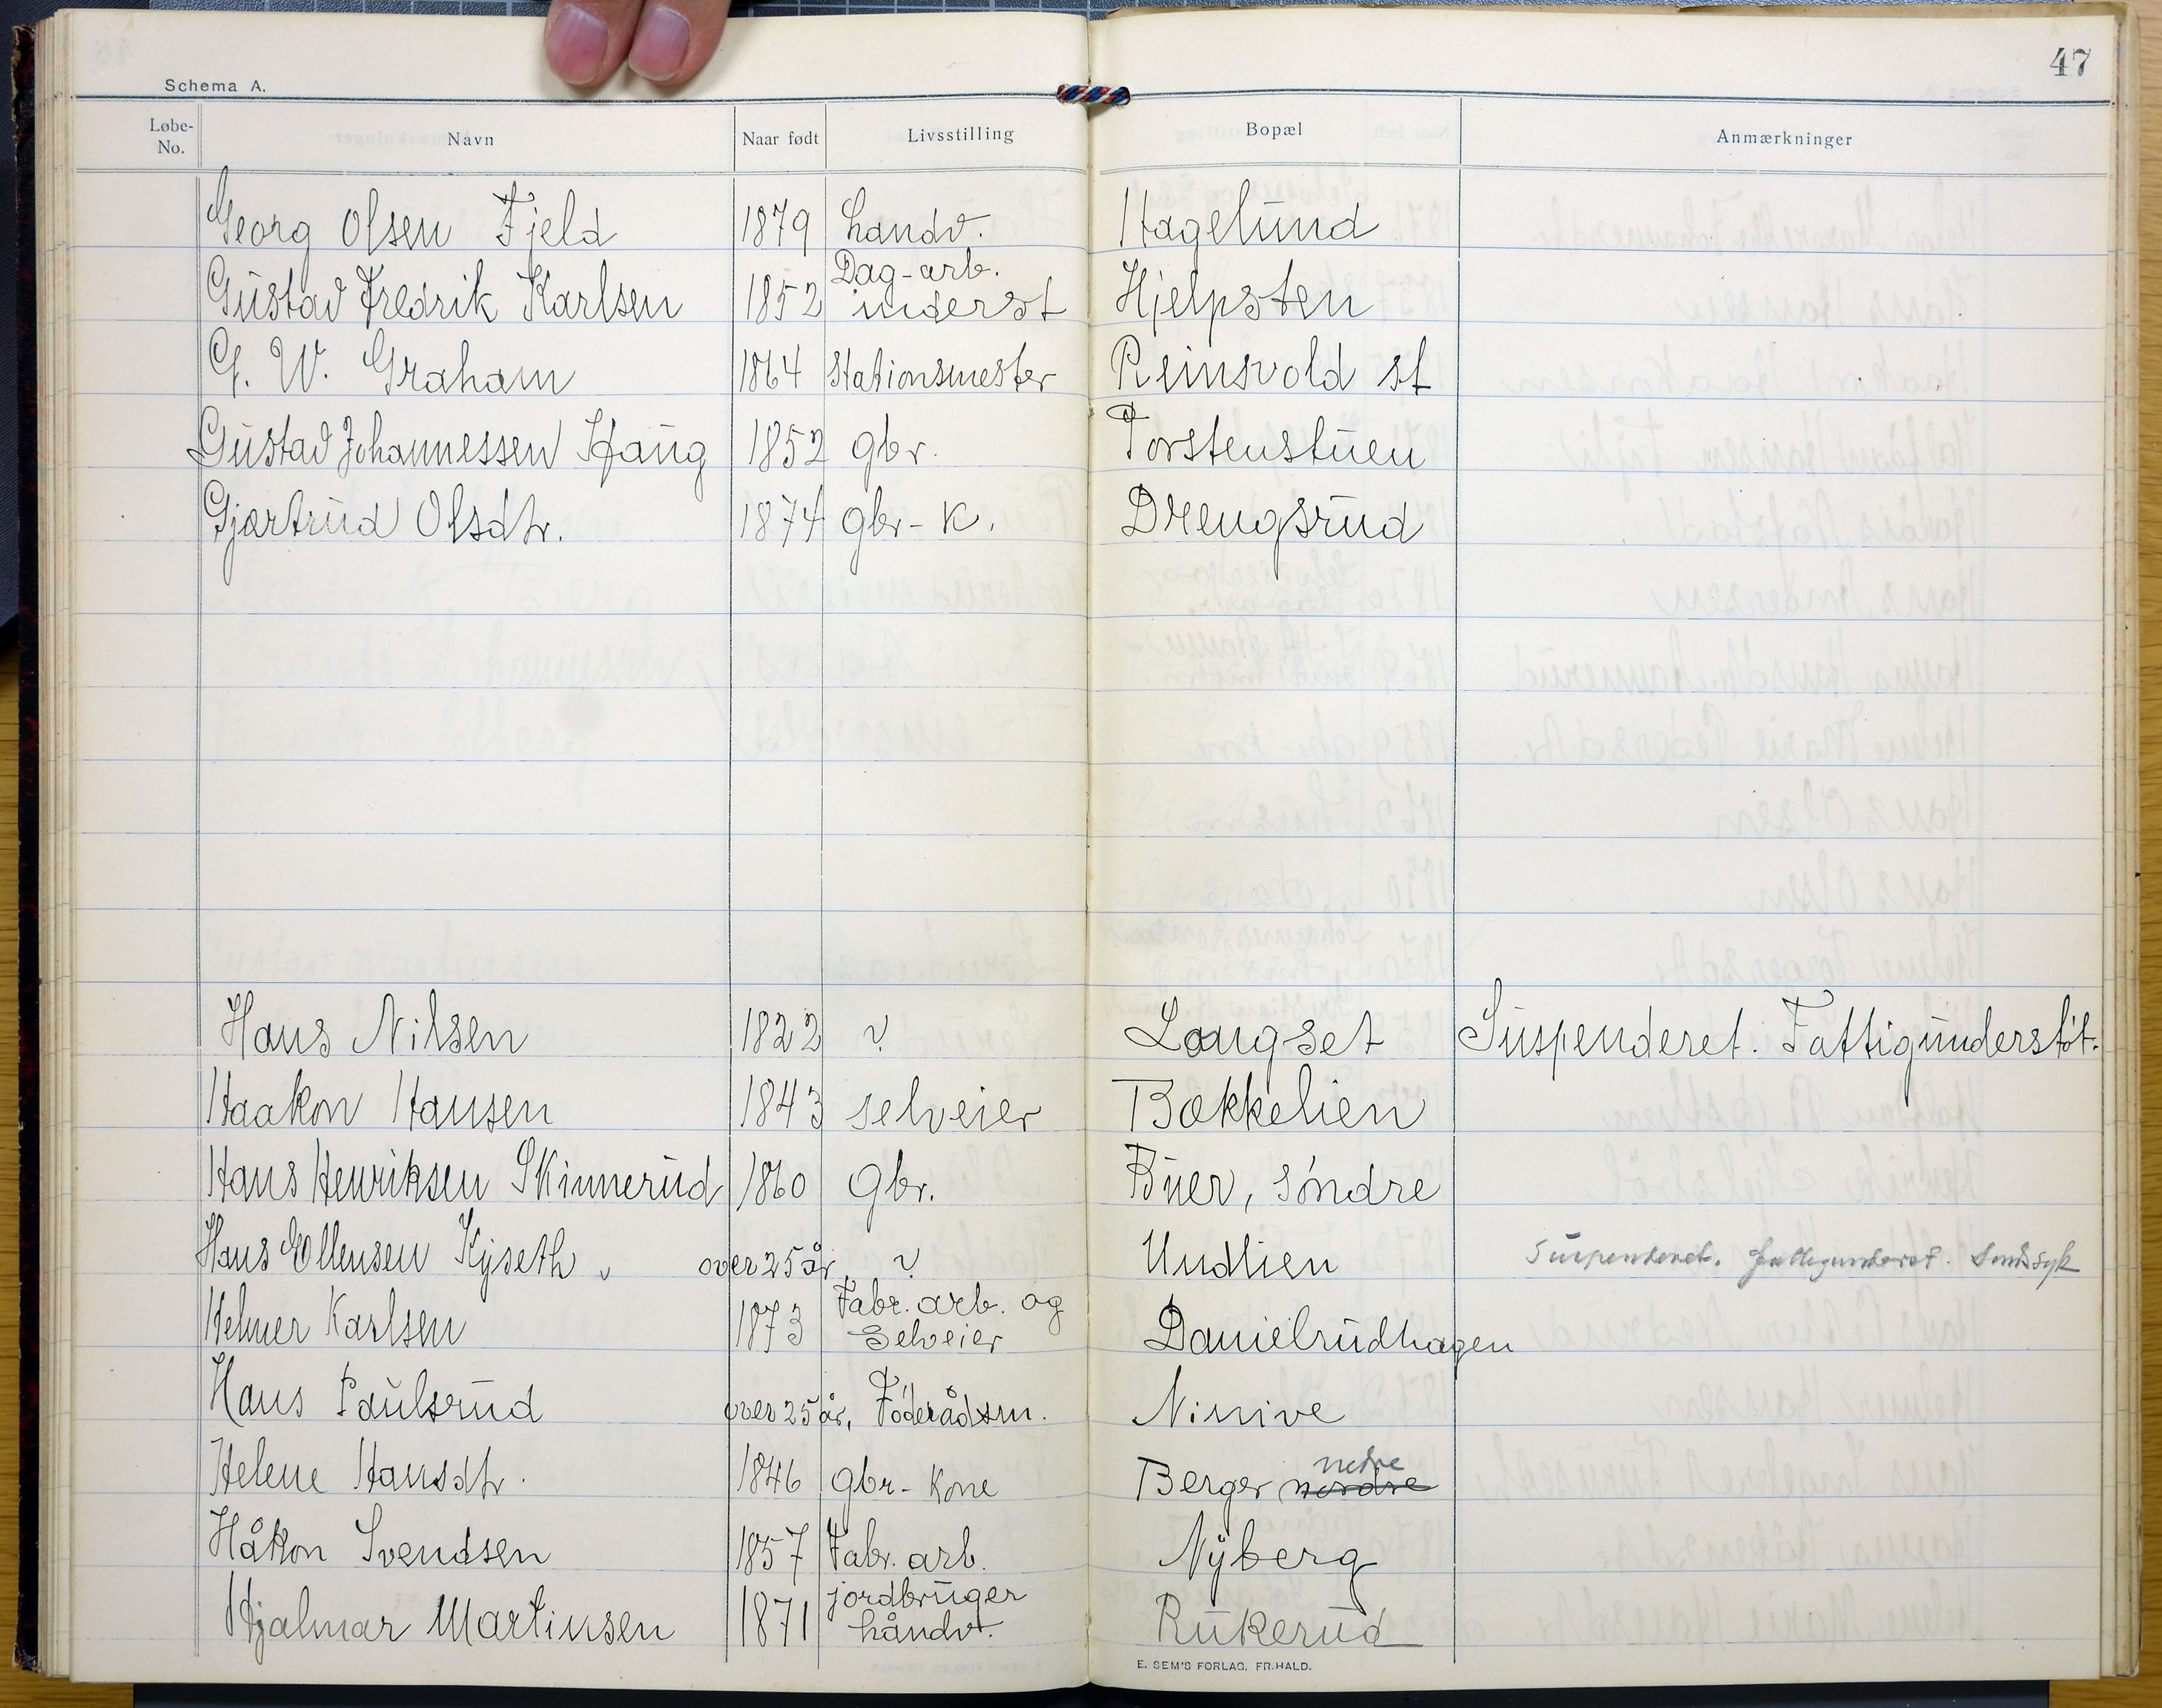 47
Schema A.
Løbe-No. Navn Naar født Livsstilling Bopæl Anmærkninger
Georg Olsen Fjeld 1879 handv. Hagelund
Gustav Fredrik Karlsen 1852 Dag-arb. inderst Hjelpsten
G. W. Graham 1864 Stationsmester Reinsvold st
Gustav Johannessen Haug 1852 gbr. Torstenstuen
Gjærtrud Olsdtr. 1874 gbr-K. Drengsrud
Hans Nilsen 1822 ? Langset Suspenderet. Fattigunderstøt.
Haakon Hansen 1843 selveier Bækkelien
Hans Henriksen Skinnerud 1860 Gbr. Buer, søndre
Hans Ellensen Kyseth over 25 år, ? Undlien Suspenderet. fattigunderst. Sindssyk
Helmer Karlsen 1873 Fabr. arb. og Selveier Danielrudhagen
Hans Paulsrud over 25 år, Føderådsm. Ninive
Helene Hansdtr. 1846 gbr-Kone Berger nordre nedre
Håkon Svendsen 1857 Fabr. arb. Nyberg
Hjalmar Martinsen 1871 jordbruger håndv. Rukerud
E. SEM'S FORLAG, FR.HALD.